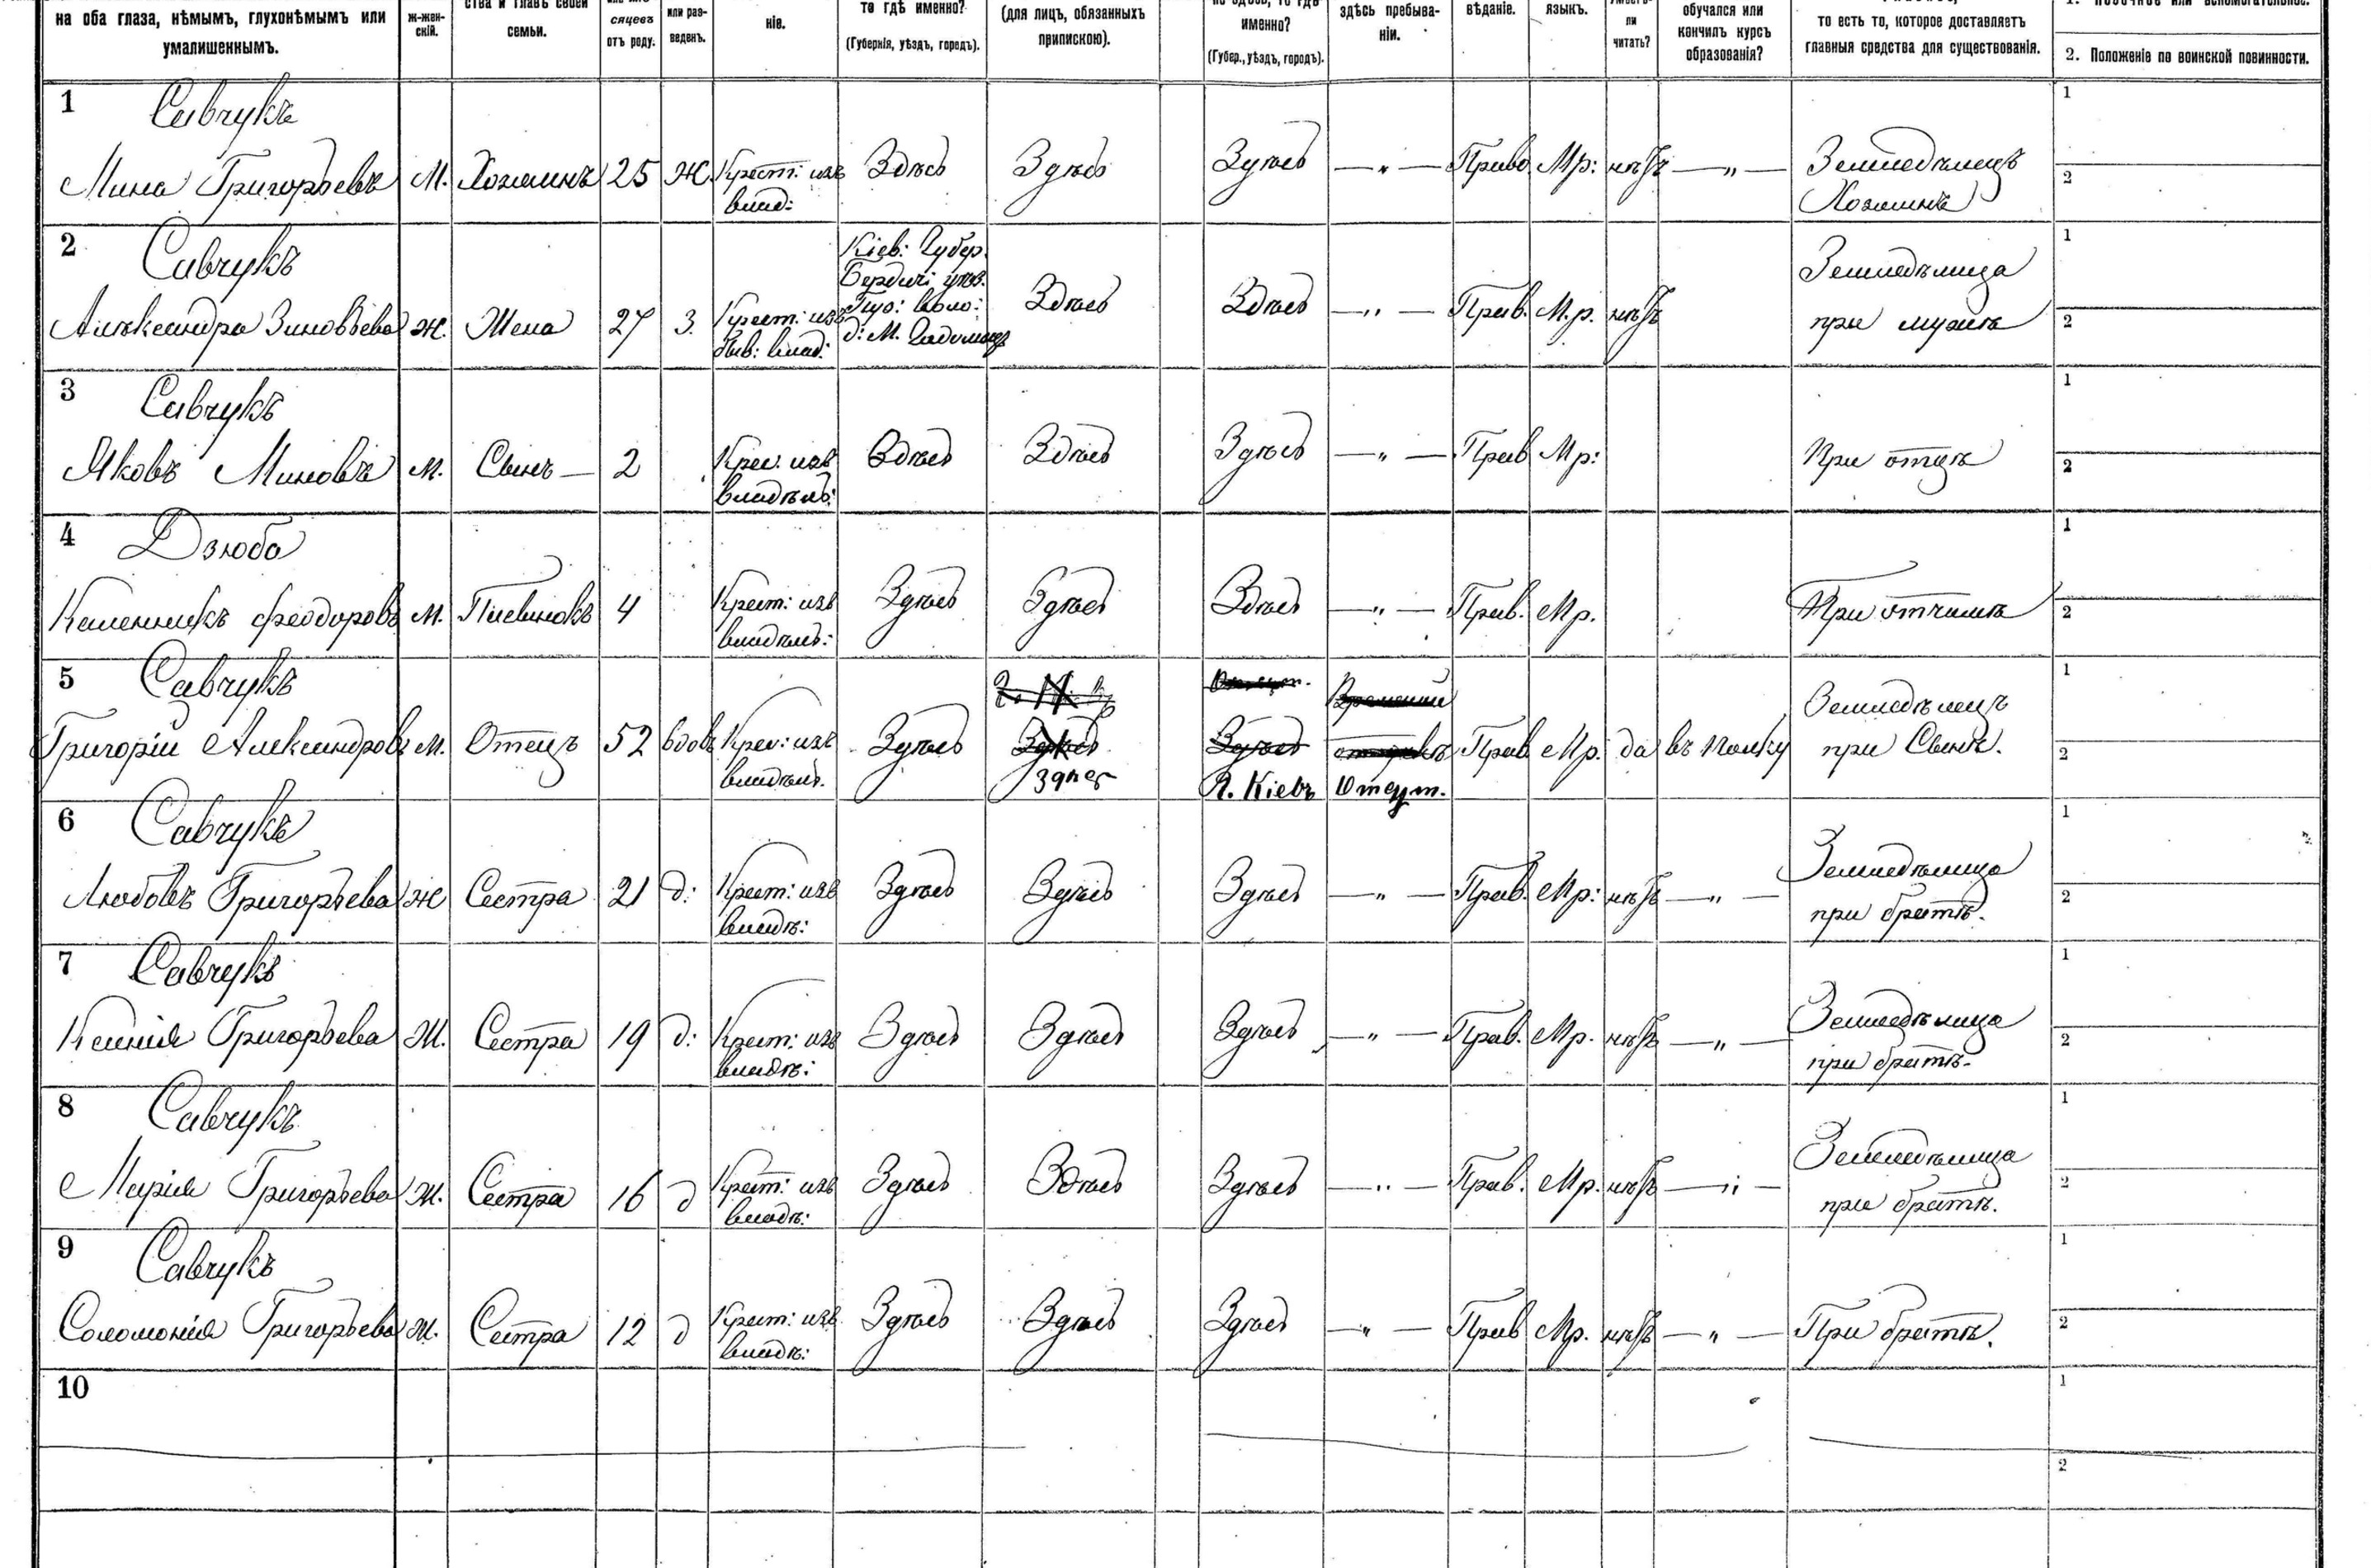 на оба глаза, нѣмымъ, глухонѣмымъ или умалишеннымъ.
ж-женскій.
ства и главѣ своей семьи.
сяцевъ отъ роду.
или разведенъ.
ніе.
то гдѣ именно? (Губернія, уѣздъ, городъ).
(для лицъ, обязанныхъ припискою).
именно? (Губер., уѣздъ, городъ).
здѣсь пребываніи.
вѣданіе.
языкъ.
ли читать?
обучался или кончилъ курсъ образованія?
то есть то, которое доставляетъ главныя средства для существованія.
2. Положеніе по воинской повинности.
1 Савчукъ
Мина Григорьевъ М. Хозяинъ 25 Ж. Крест: изъ влад: Здѣсь Здѣсь Здѣсь — „ — Право Мр: нѣтъ — „ — Земледѣлецъ Хозяинъ 1 2
2 Савчукъ
Александра Зиновьева Ж. Жена 27 З. Крест: изъ влад: Кіев: Губер. Бердич: уѣз. Здѣсь Здѣсь — „ — Прав. М.р. нѣтъ Земледѣлица при мужѣ 1 2
3 Савчукъ
Яковъ Миновъ М. Сынъ — 2 Крес. изъ владѣль: Здѣсь Здѣсь Здѣсь — „ — Прав Мр: При отцѣ 1 2
4 Дзюба
Феодоровъ М. Пасынокъ 4 Крест: изъ владѣль: Здѣсь Здѣсь Здѣсь — „ — Прав. Мр. При отчимѣ 1 2
5 Савчукъ
Григорій Александровъ М. Отецъ 52 вдов. Крес: изъ владѣль. Здѣсь Здѣсь Здѣсь Здѣсь Г. Кіевъ Отсут. Прав Мр. да въ полку Земледѣлецъ при Сынѣ. 1 2
6 Савчукъ
Любовь Григорьева Ж Сестра 21 д: Крест: изъ владѣ: Здѣсь Здѣсь Здѣсь — „ — Прав. Мр: нѣтъ — „ — Земледѣлица при братѣ. 1 2
7 Савчукъ
Ксенія Григорьева Ж. Сестра 19 д: Крест: изъ владѣ: Здѣсь Здѣсь Здѣсь — „ — Прав. Мр. нѣтъ — „ — Земледѣлица при братѣ. 1 2
8 Савчукъ
Марія Григорьева Ж. Сестра 16 д Крест: изъ владѣ: Здѣсь Здѣсь Здѣсь — „ — Прав. Мр. нѣтъ — „ — Земледѣлица при братѣ. 1 2
9 Савчукъ
Соломонія Григорьева Ж. Сестра 12 д Крест: изъ владѣ: Здѣсь Здѣсь Здѣсь — „ — Прав Мр. нѣтъ — „ — При братѣ. 1 2
10 1 2